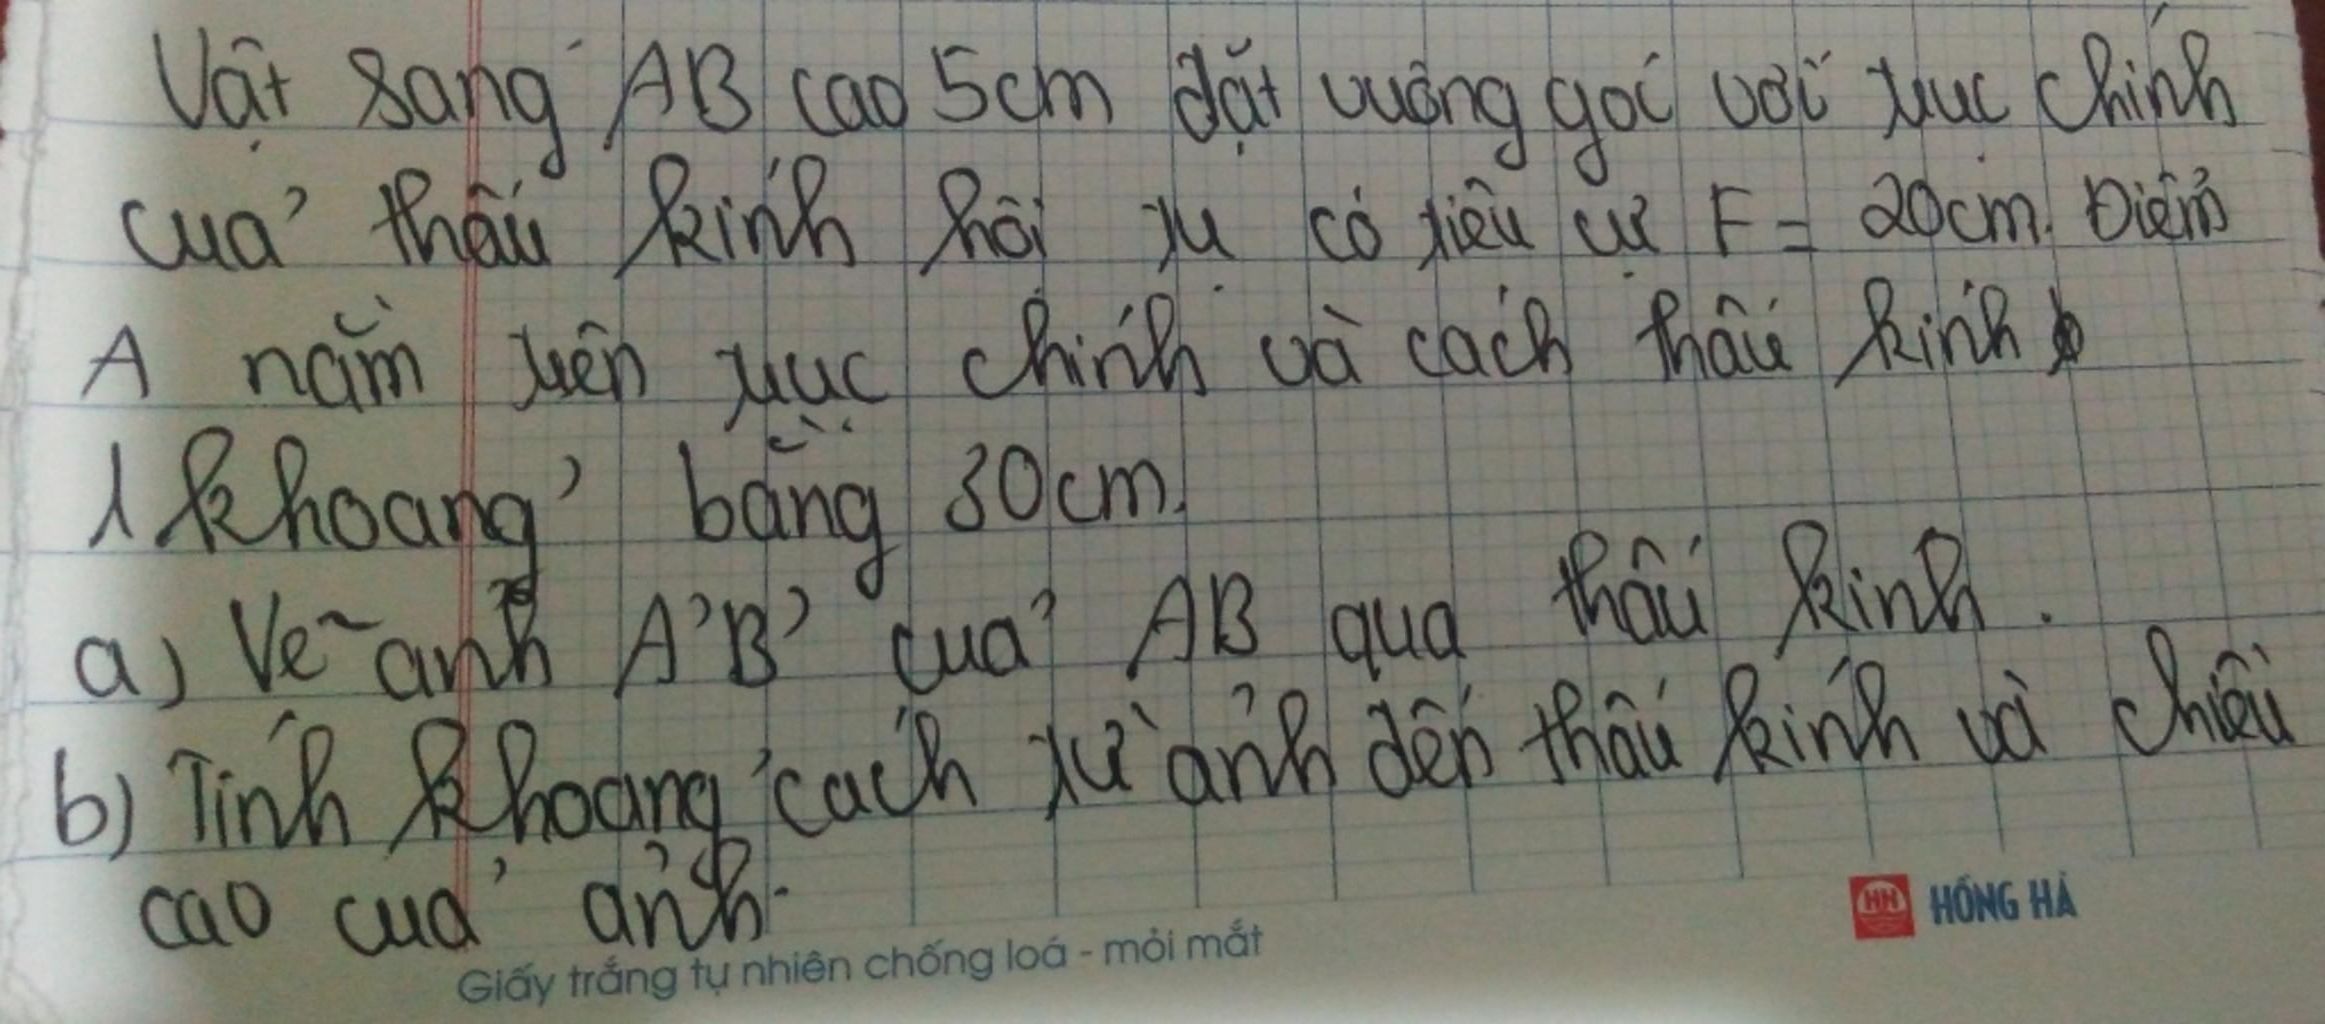 Vật sáng AB cao 5cm đặt vuông góc với trục chính
của thấu kính hội tụ có tiêu cự F = 20cm. Điểm
A nằm trên trục chính và cách thấu kính
1 khoảng bằng 30cm.
a) Vẽ ảnh A'B' của AB qua thấu kính.
b) Tính khoảng cách từ ảnh đến thấu kính và chiều
cao của ảnh.
HH HỒNG HÀ
Giấy trắng tự nhiên chống loá - mỏi mắt